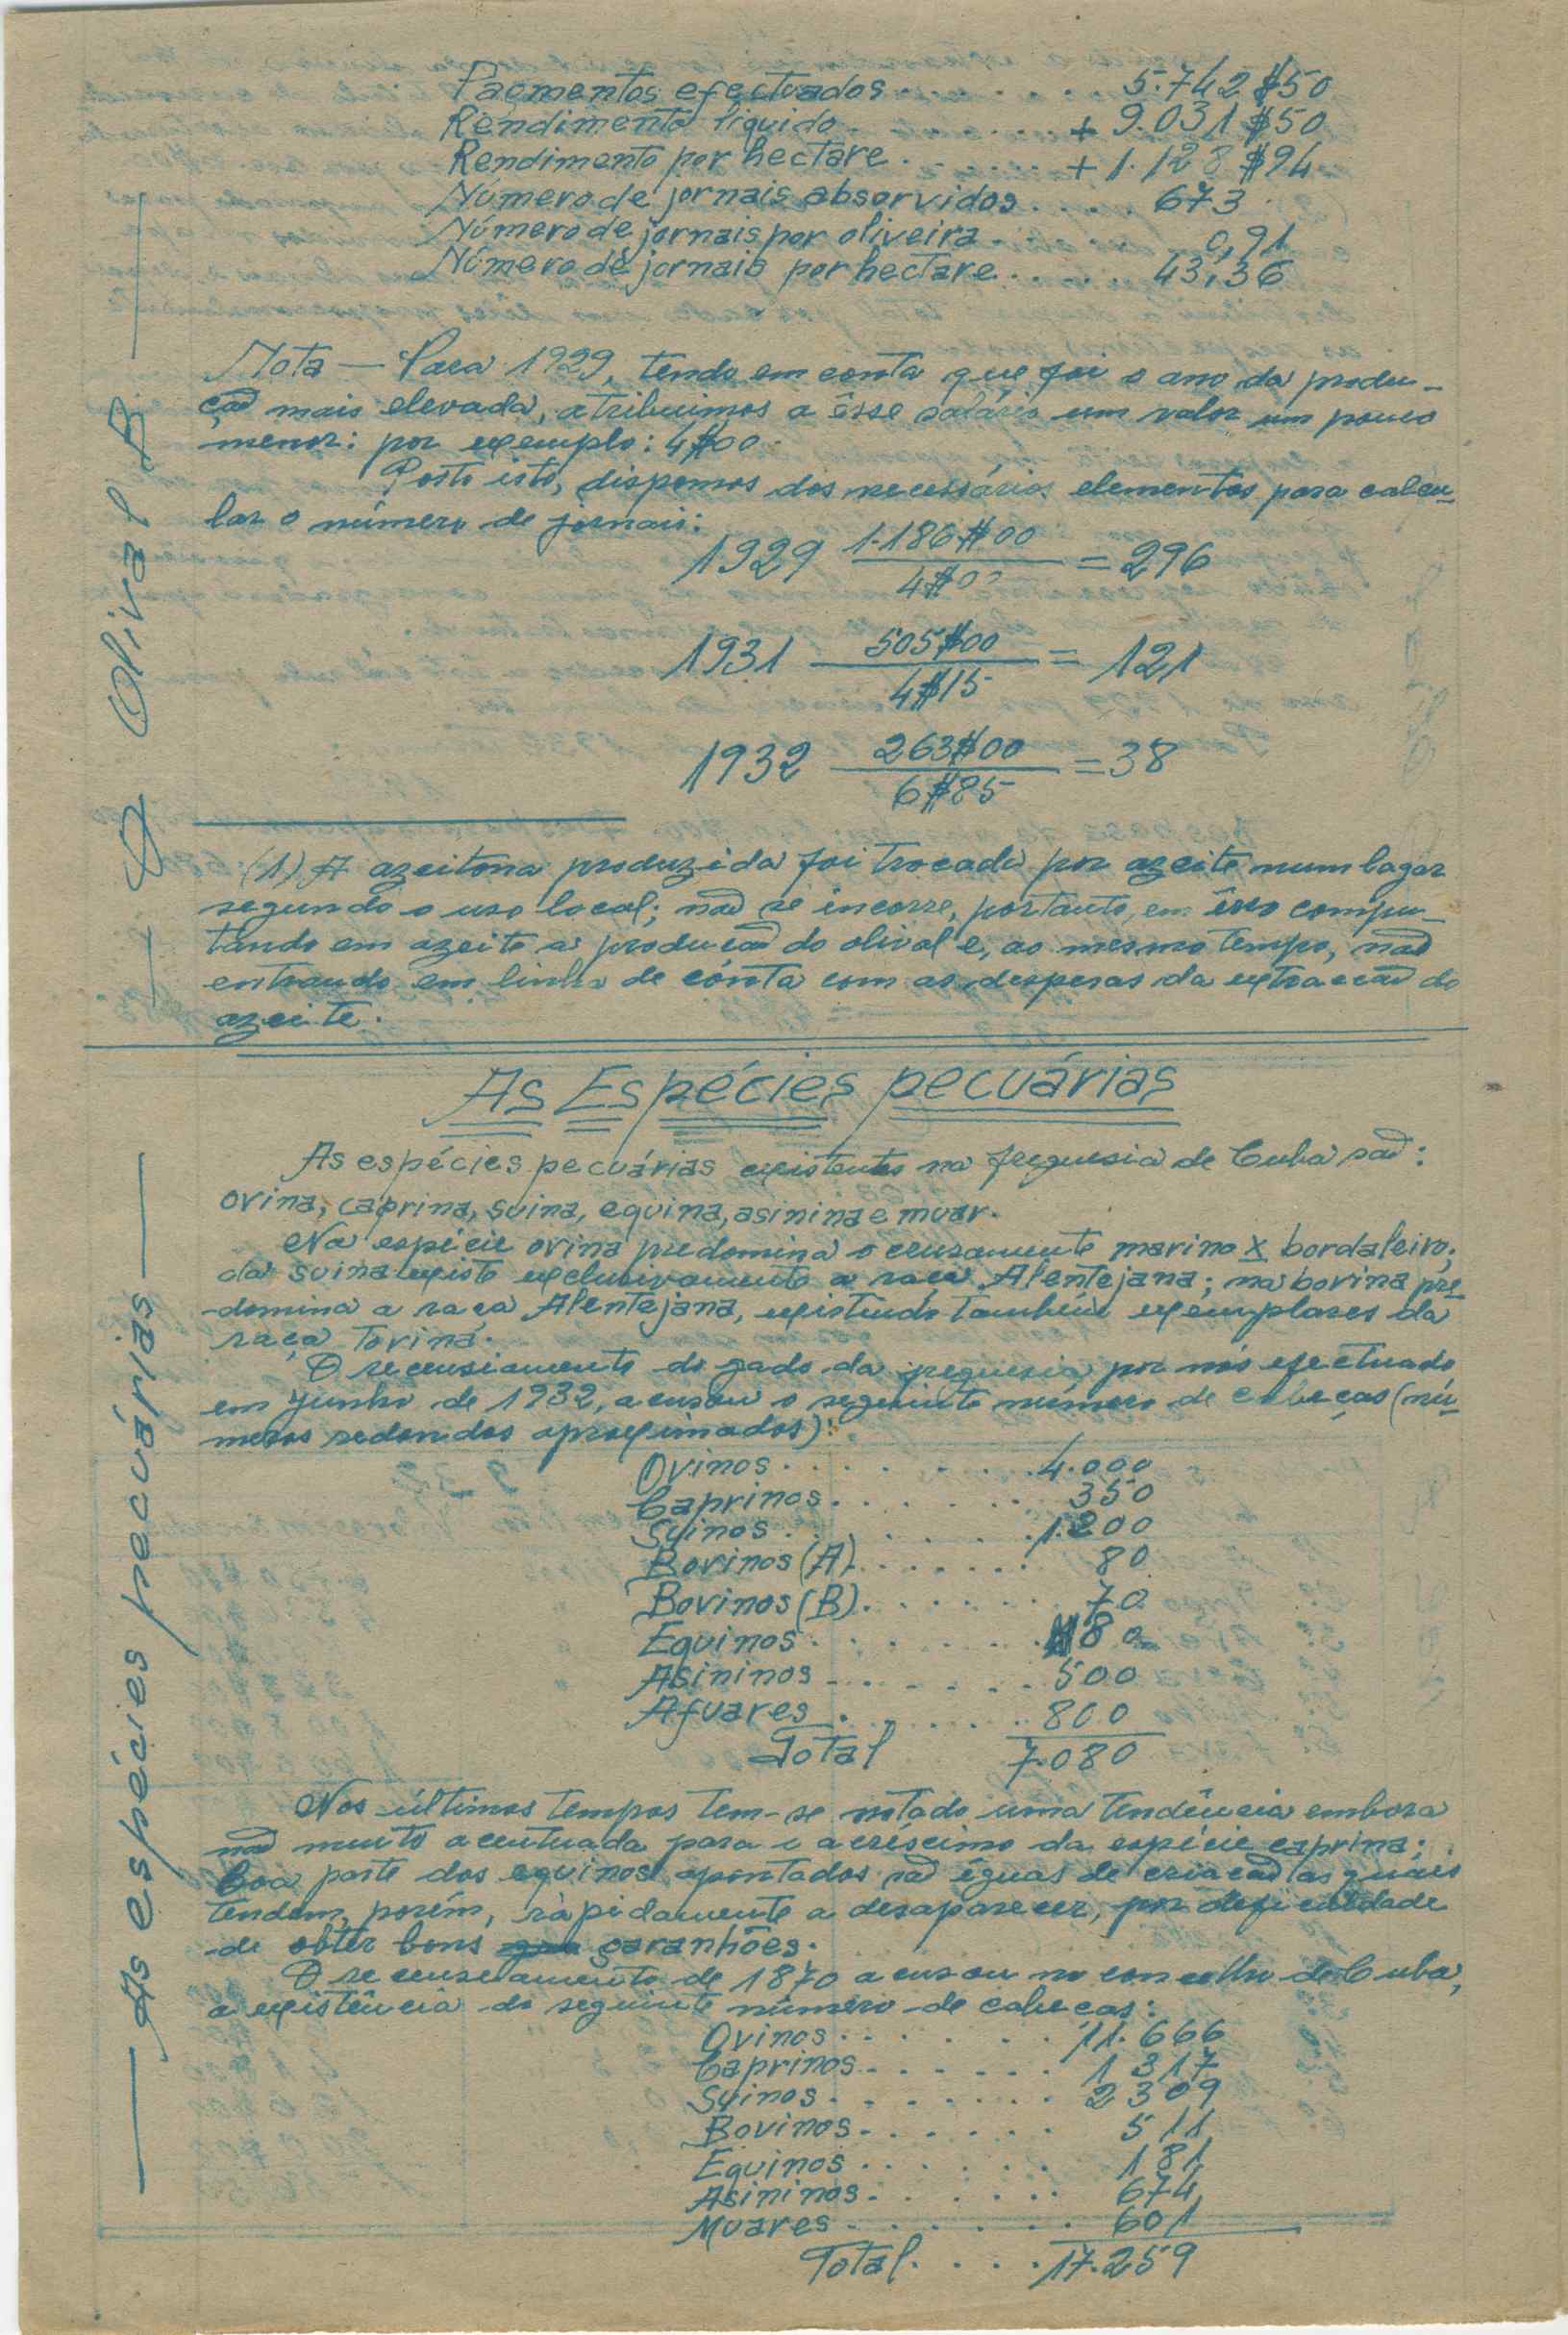 Pagmentos efectuados . . . . . . 5.742$50
Rendimento líquido . . . . . + 9.031$50
Rendimento por hectare . . . . + 1.128$94
Número de jornais absorvidos . . . . 673
Número de jornais por oliveira . . . 0,91
Número de jornais por hectare . . . . . 43,36
— O Olival B —
Nota — Para 1929, tendo em conta que foi o ano da produ-
ção mais elevada, atribuimos a êsse salário um valor um pouco
menor: por exemplo: 4$00.
Posto isto, dispomos dos necessários elementos para calcu-
lar o número de jornais:
1929 1.186$00 / 4$00 = 296
1931 505$00 / 4$15 = 121
1932 263$00 / 6$85 = 38
(1) A azeitona produzida foi trocada por azeite num lagar
segundo o uso local; não se incorre, portanto, em êrro compu-
tando em azeite a produção do olival e, ao mesmo tempo, não
entrando em linha de conta com as despesas da extracção do
azeite.
As Espécies pecuárias
— As espécies pecuárias —
As espécies pecuárias existentes na freguesia de Cuba são:
ovina, caprina, suina, equina, asinina e muar.
Na espécie ovina predomina o cruzamento marino X bordaleiro;
da suina existe exclusivamente a raça Alentejana; na bovina pre-
domina a raça Alentejana, existindo também exemplares da
raça Torina.
O recenseamento do gado da freguesia por nós efectuado
em Junho de 1932, acusou o seguinte número de cabeças (nú-
meros redondos aproximados):
Ovinos . . . . . . . . 4.000
Caprinos . . . . . . 350
Suinos . . . . . . . 1.200
Bovinos (A) . . . . . . 80
Bovinos (B) . . . . . . 70
Equinos . . . . . . . 80
Asininos . . . . . . 500
Muares . . . . . . . 800
Total 7.080
Nos últimos tempos tem-se notado uma tendência embora
não muito acentuada para o acréscimo da espécie caprina;
boa parte dos equinos apontados são éguas de criação as quais
tendem, porém, ràpidamente a desaparecer, por deficuldade
de obter bons garanhões.
O recenseamento de 1870 acusou no concelho de Cuba,
a existência do seguinte número de cabeças:
Ovinos . . . . . . . 11.666
Caprinos . . . . . . 1 317
Suinos . . . . . . . 2309
Bovinos . . . . . . 511
Equinos . . . . . . 181
Asininos . . . . . . 674
Muares . . . . . . . 601
Total . . . . 17.259